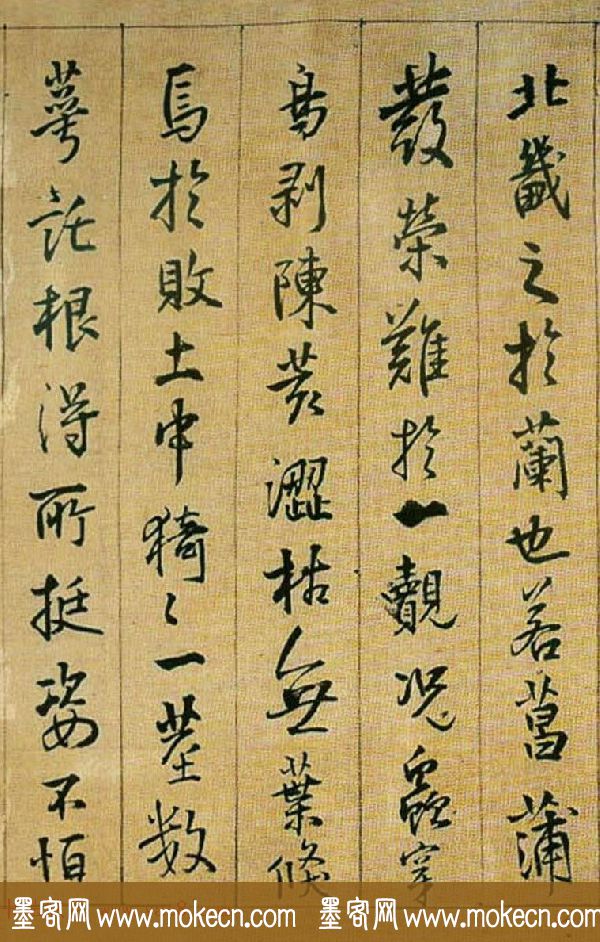 北畿之於蘭也若菖蒲
發榮難於一覿况穿
剥陳荄澀枯無葉倏
焉於敗土中猗〻一茎数
萼託根得所挺姿不恒
墨客网 www.mokecn.com 墨客网 www.mokecn.com